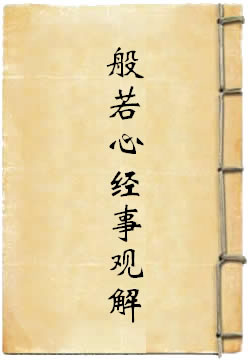 般若心经事观解